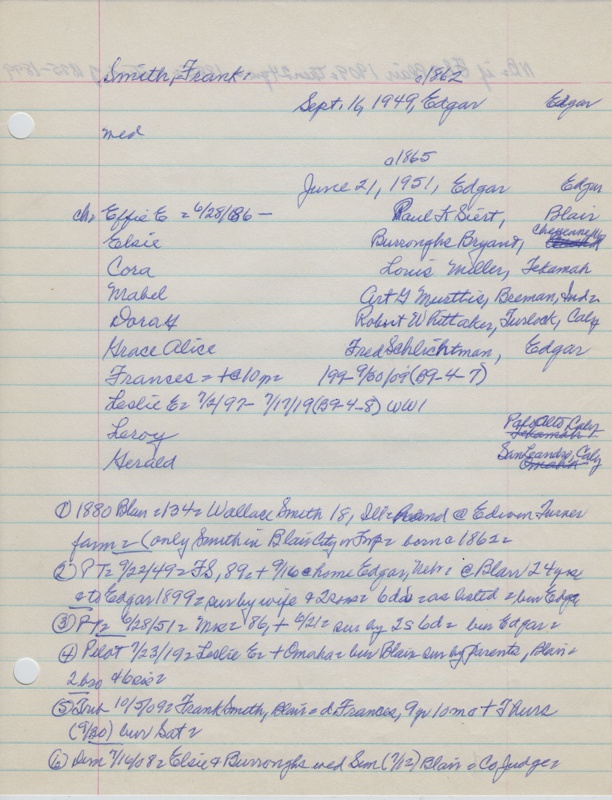 Smith, Frank = c1862
Sept. 16, 1949, Edgar Edgar
med
c1865
June 21, 1951, Edgar Edgar
ch, Effie E = 6/28/86 - Paul K Siert, Blair
Elsie Burroughs Bryant, Cheyenne
Cora Louis Miller, Tekamah
Mabel Art G Murttis, Beeman, Ind =
Dora Robert Whittaker, Turlock, Calif
Grace Alice Fred Schlichtman, Edgar
Frances = + @ 10 p = 199- 9/30/09 (B9-4-7)
Leslie E = 7/2/97- 7/17/19 (B9-4-8) WW1
Leroy Palo Alto, Calif Tekamah
Gerald San Leandro, Calif Omaha
① 1880 Blair = 134 = Wallace Smith 18, Ill = hand @ Edison Turner
farm = (only Smith in Blair City or Twp = born c 1862 =
② PT = 9/22/49 = FS, 89, + 9/16 @ home Edgar, Neb = @ Blair 24 yrs
= to Edgar 1899 = sur by wife & 2 sons = 6 ds = as listed = bur Edgar
③ PT = 6/28/51 = Mrs = 86, + 6/21 = sur by 2s 6d = bur Edgar =
④ Pilot 7/23/19 = Leslie E = + Omaha = bur Blair sur by parents, Blair =
2 bro 4 sis =
⑤ Trib 10/5/09 = Frank Smith, Blair = d Frances, 9 y 10 mo + Thurs
(9/30) bur Sat =
⑥ Dem 7/16/08 = Elsie & Burroughs wed Sun (7/12) Blair = Co Judge =